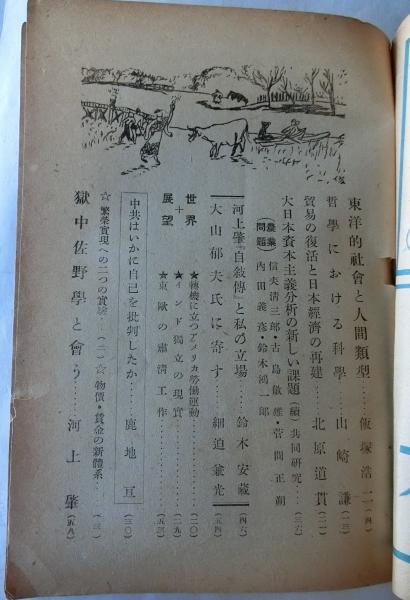 東洋的社會と人間類型……飯塚浩二…(四)
哲學における科學……山崎謙…(一三)
貿易の復活と日本經濟の再建……北原道貫…(二一)
大日本資本主義分析の新しい課題(續)共同研究…(三六)
(農業問題)信夫清三郎・古島敏雄・菅間正朔
内田義彦・鈴木鴻一郎
河上肇『自敍傳』と私の立場……鈴木安藏…(四六)
大山郁夫氏に寄す……細迫兼光…(五四)
世界+展望
★轉機に立つアメリカ勞働運動……(二〇)
★インド獨立の現實……(二九)
★東歐の肅清工作……(五三)
中共はいかに自己を批判したか……鹿地亘…(三〇)
☆繁榮實現への二つの實驗…(一二)☆物價・賃金の新體系…(三)
獄中佐野學と會う……河上肇(五八)